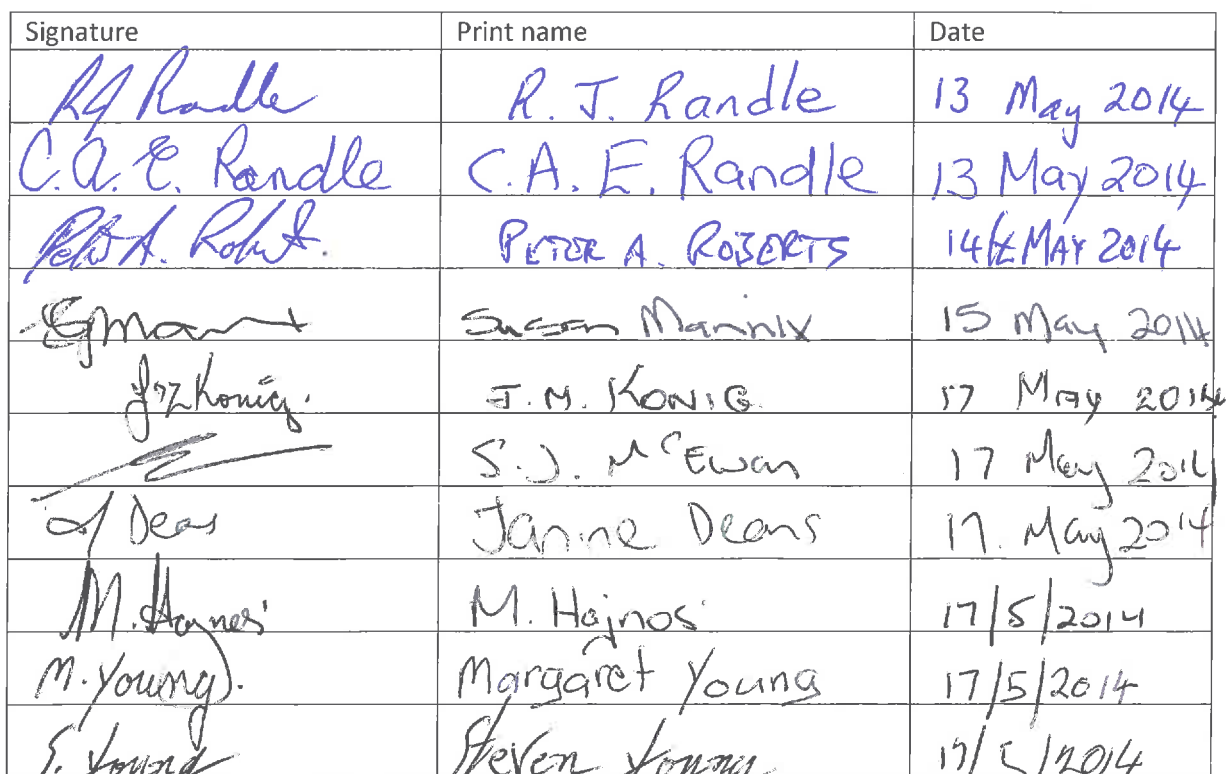 Signature Print name Date
RJ Randle R. J. Randle 13 May 2014
C. A. E. Randle C. A. E. Randle 13 May 2014
Peter A. Robert. PETER A. ROBERTS 14 MAY 2014
Susan Mannix 15 May 2014
J M Konig. J. M. KONIG 17 MAY 2014
S. J. McEwan 17 May 2014
J Deans Janine Deans 17. May 2014
M. Hajnos M. Hajnos 17/5/2014
M. Young. Margaret Young 17/5/2014
S. Young Steven Young 17/5/2014